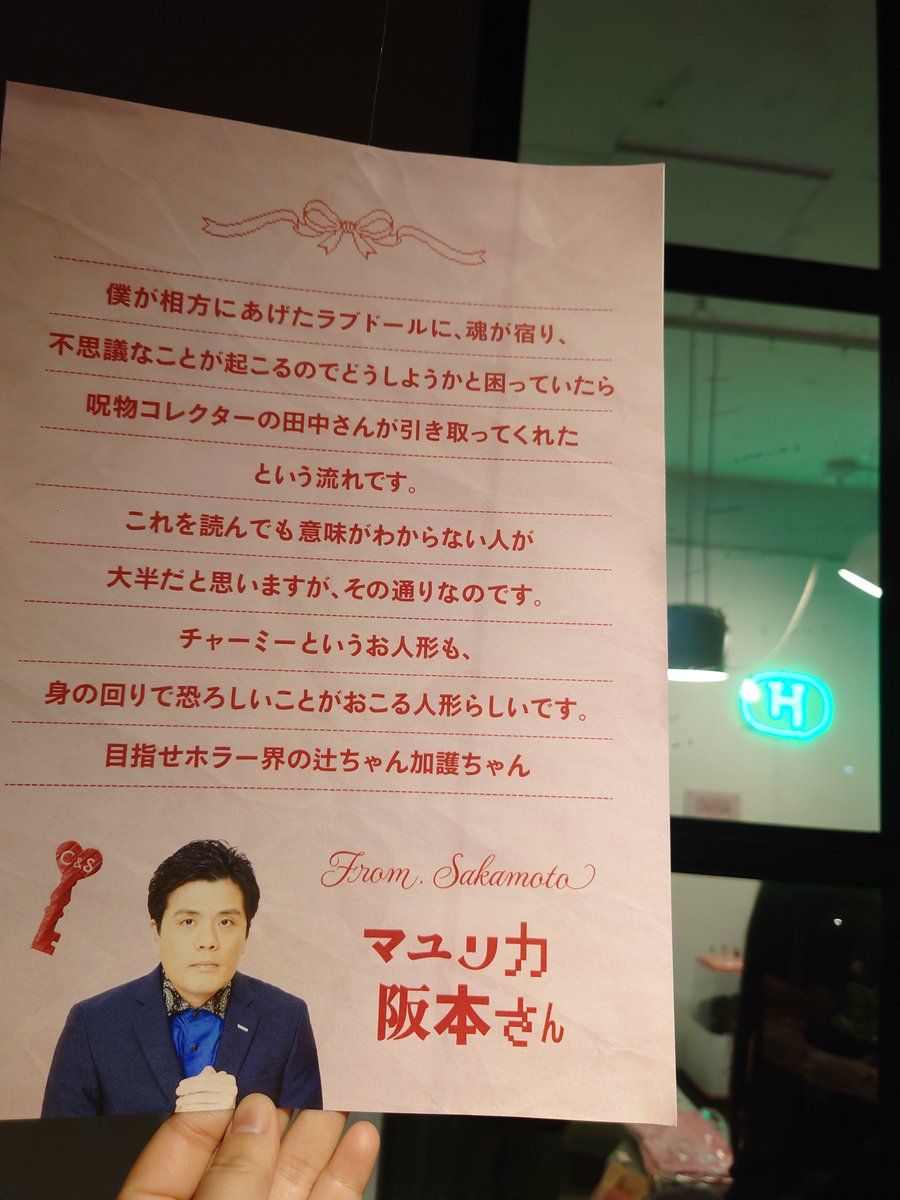 僕が相方にあげたラブドールに、魂が宿り、
不思議なことが起こるのでどうしようかと困っていたら
呪物コレクターの田中さんが引き取ってくれた
という流れです。
これを読んでも意味がわからない人が
大半だと思いますが、その通りなのです。
チャーミーというお人形も、
身の回りで恐ろしいことがおこる人形らしいです。
目指せホラー界の辻ちゃん加護ちゃん
C&S
From. Sakamoto
マユリカ
阪本さん
H